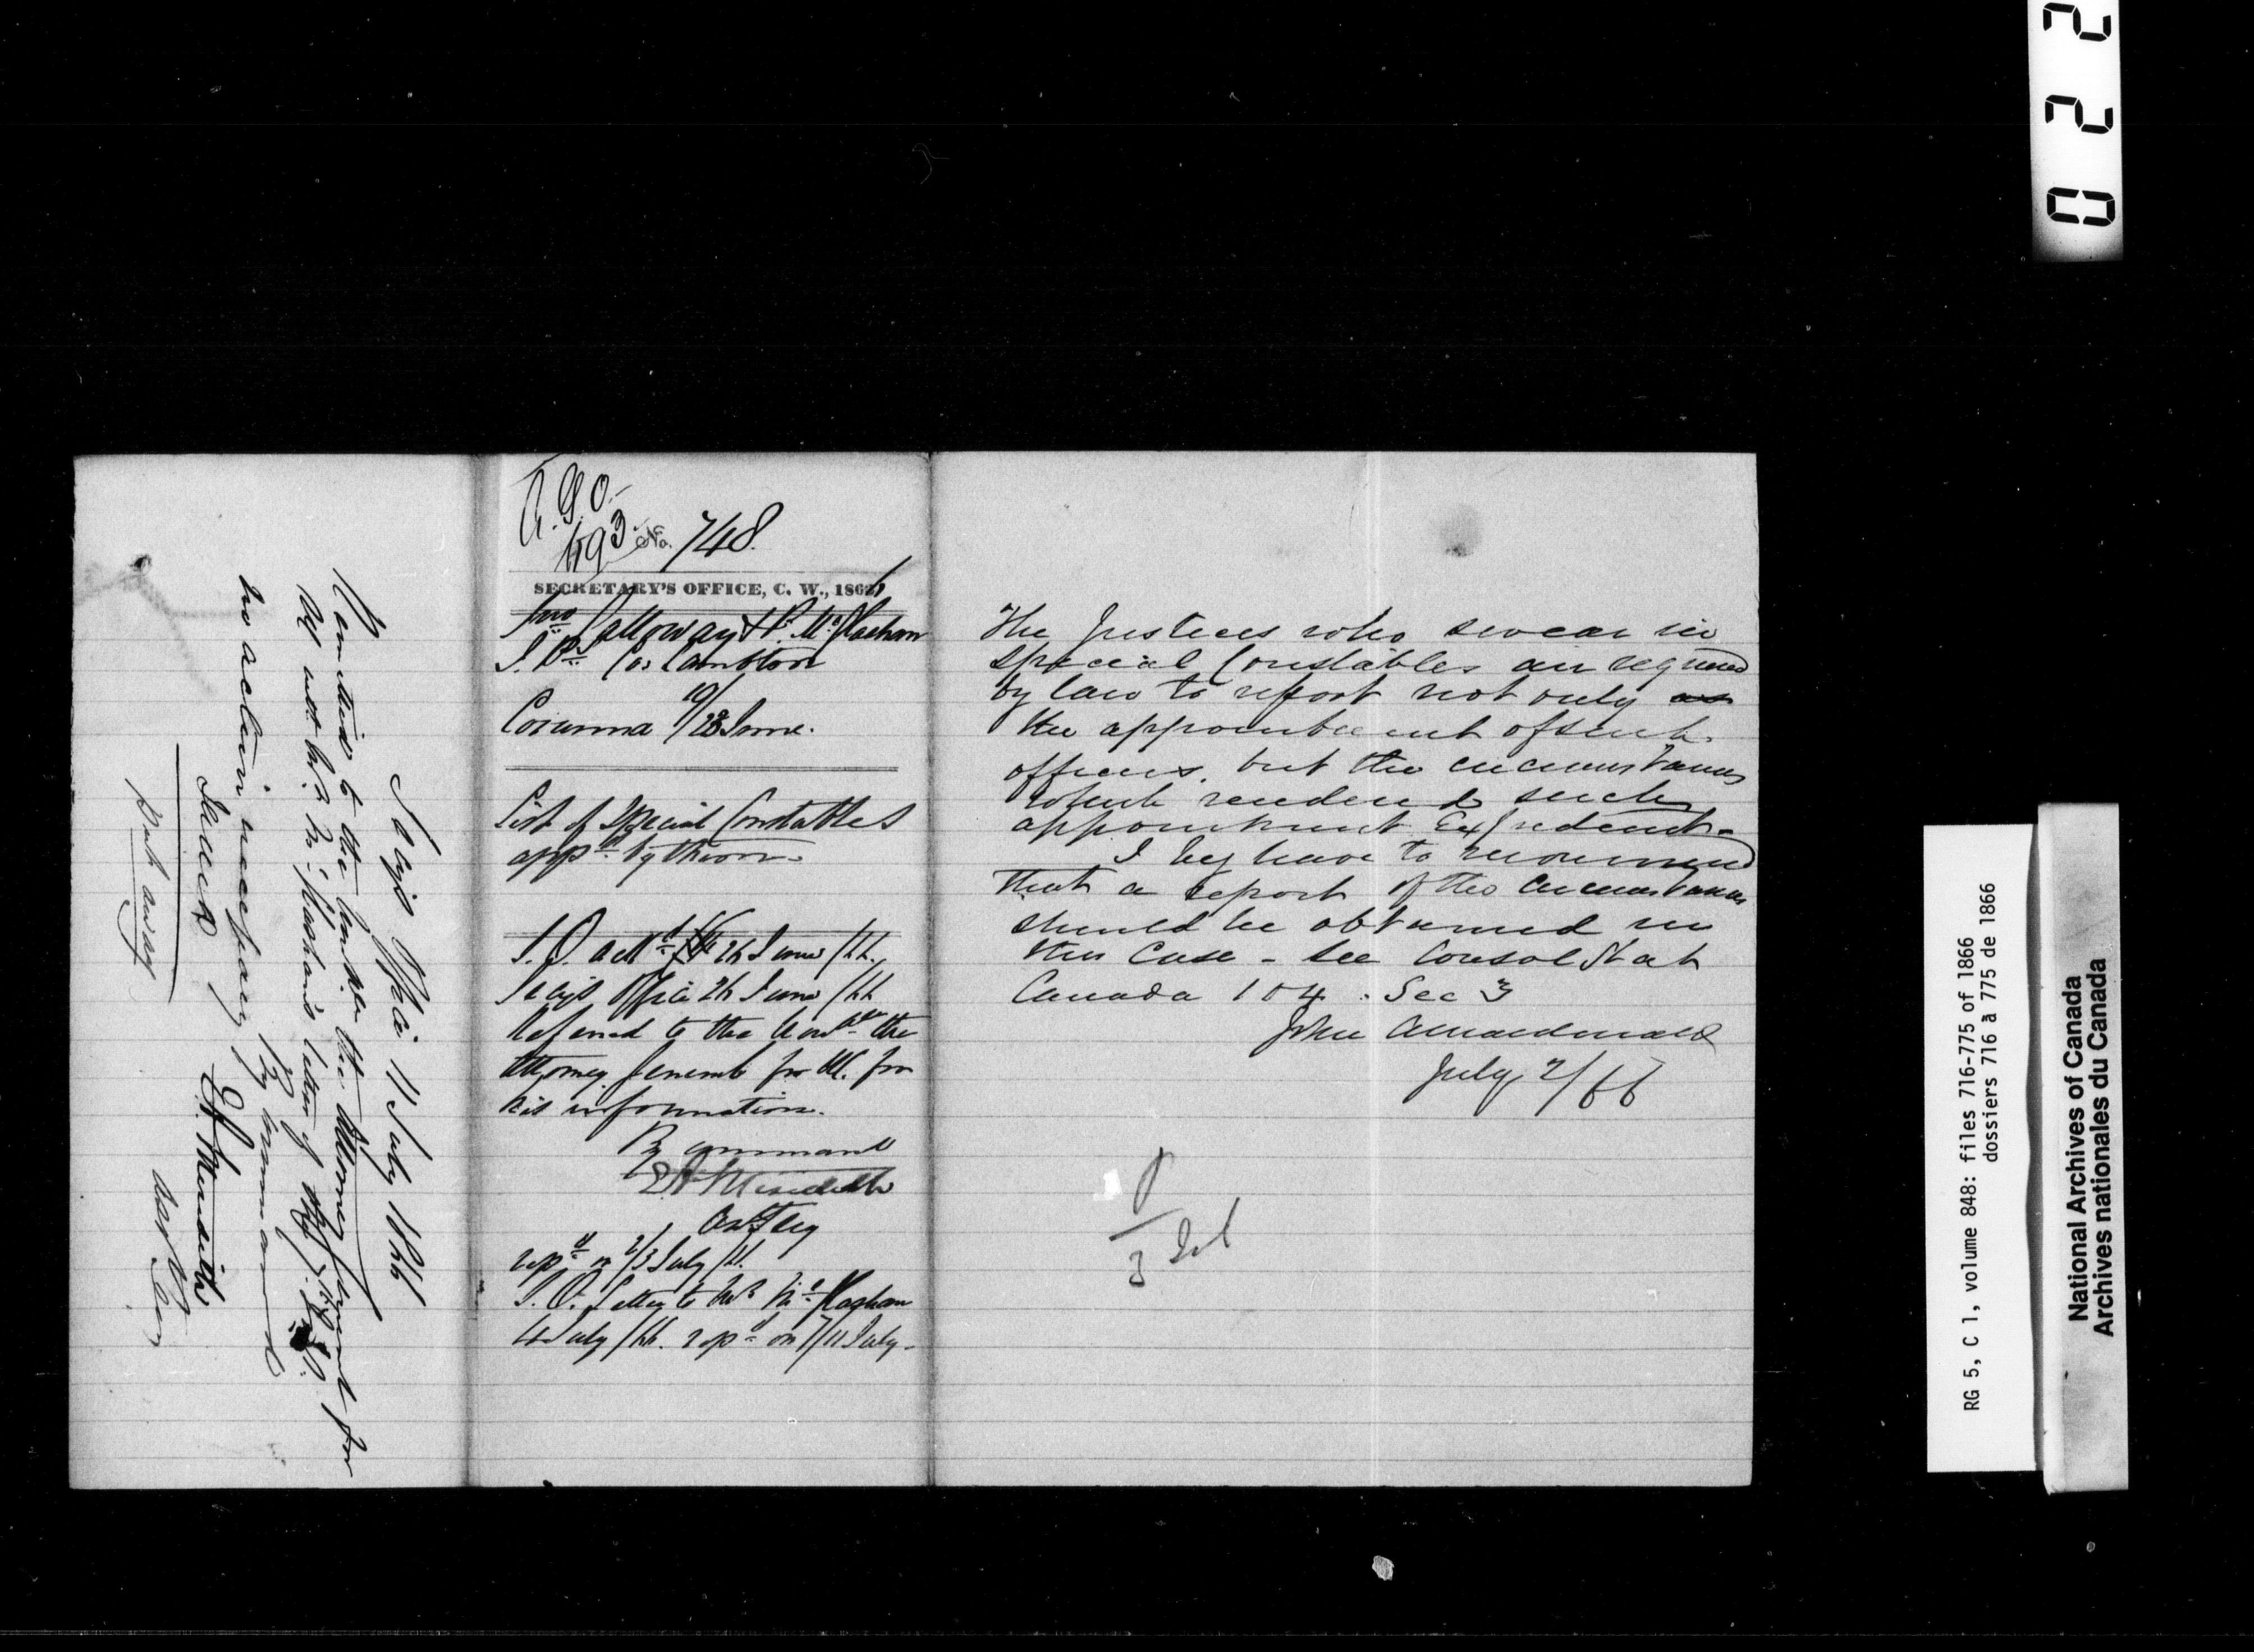 A.G.O.
493 No. 748.
SECRETARY'S OFFICE, C. W., 1866
Jno Galloway & P. McGlashan
J. Ps. Co: Lambton
Corunna 19/23 June.
List of Special Constables
appd. by them.
S.O. ackd. 26 June /66.
Secy's Office 26 June /66
Referred to the Honble. the
Attorney General for UC. for
his information.
By command
E A Meredith
Asst Secy
repd. on 2/3 July /66.
S.O. Letter to Mr. McGlashan
4 July /66. repd. on 7/11 July.
The Justices who swear in
special Constables are required
by law to report not only
the appointment of such
officers. but the circumstances
which rendered such
appointment Expedient.
I beg leave to recommend
that a report of the circumstances
should be obtained in
this case - See Consol Stat
Canada 104. Sec 3
John A Macdonald
July 2/66
3 Jul
Secy's Office 11 July 1866
Remitted to the Honble the Attorney General for
UC with Mr. McGlashan's letter of
By command
E A Meredith
Asst Secy
No action necessary
put away
RG 5, C 1, volume 848: files 716-775 of 1866
dossiers 716 à 775 de 1866
National Archives of Canada
Archives nationales du Canada
0 2 2